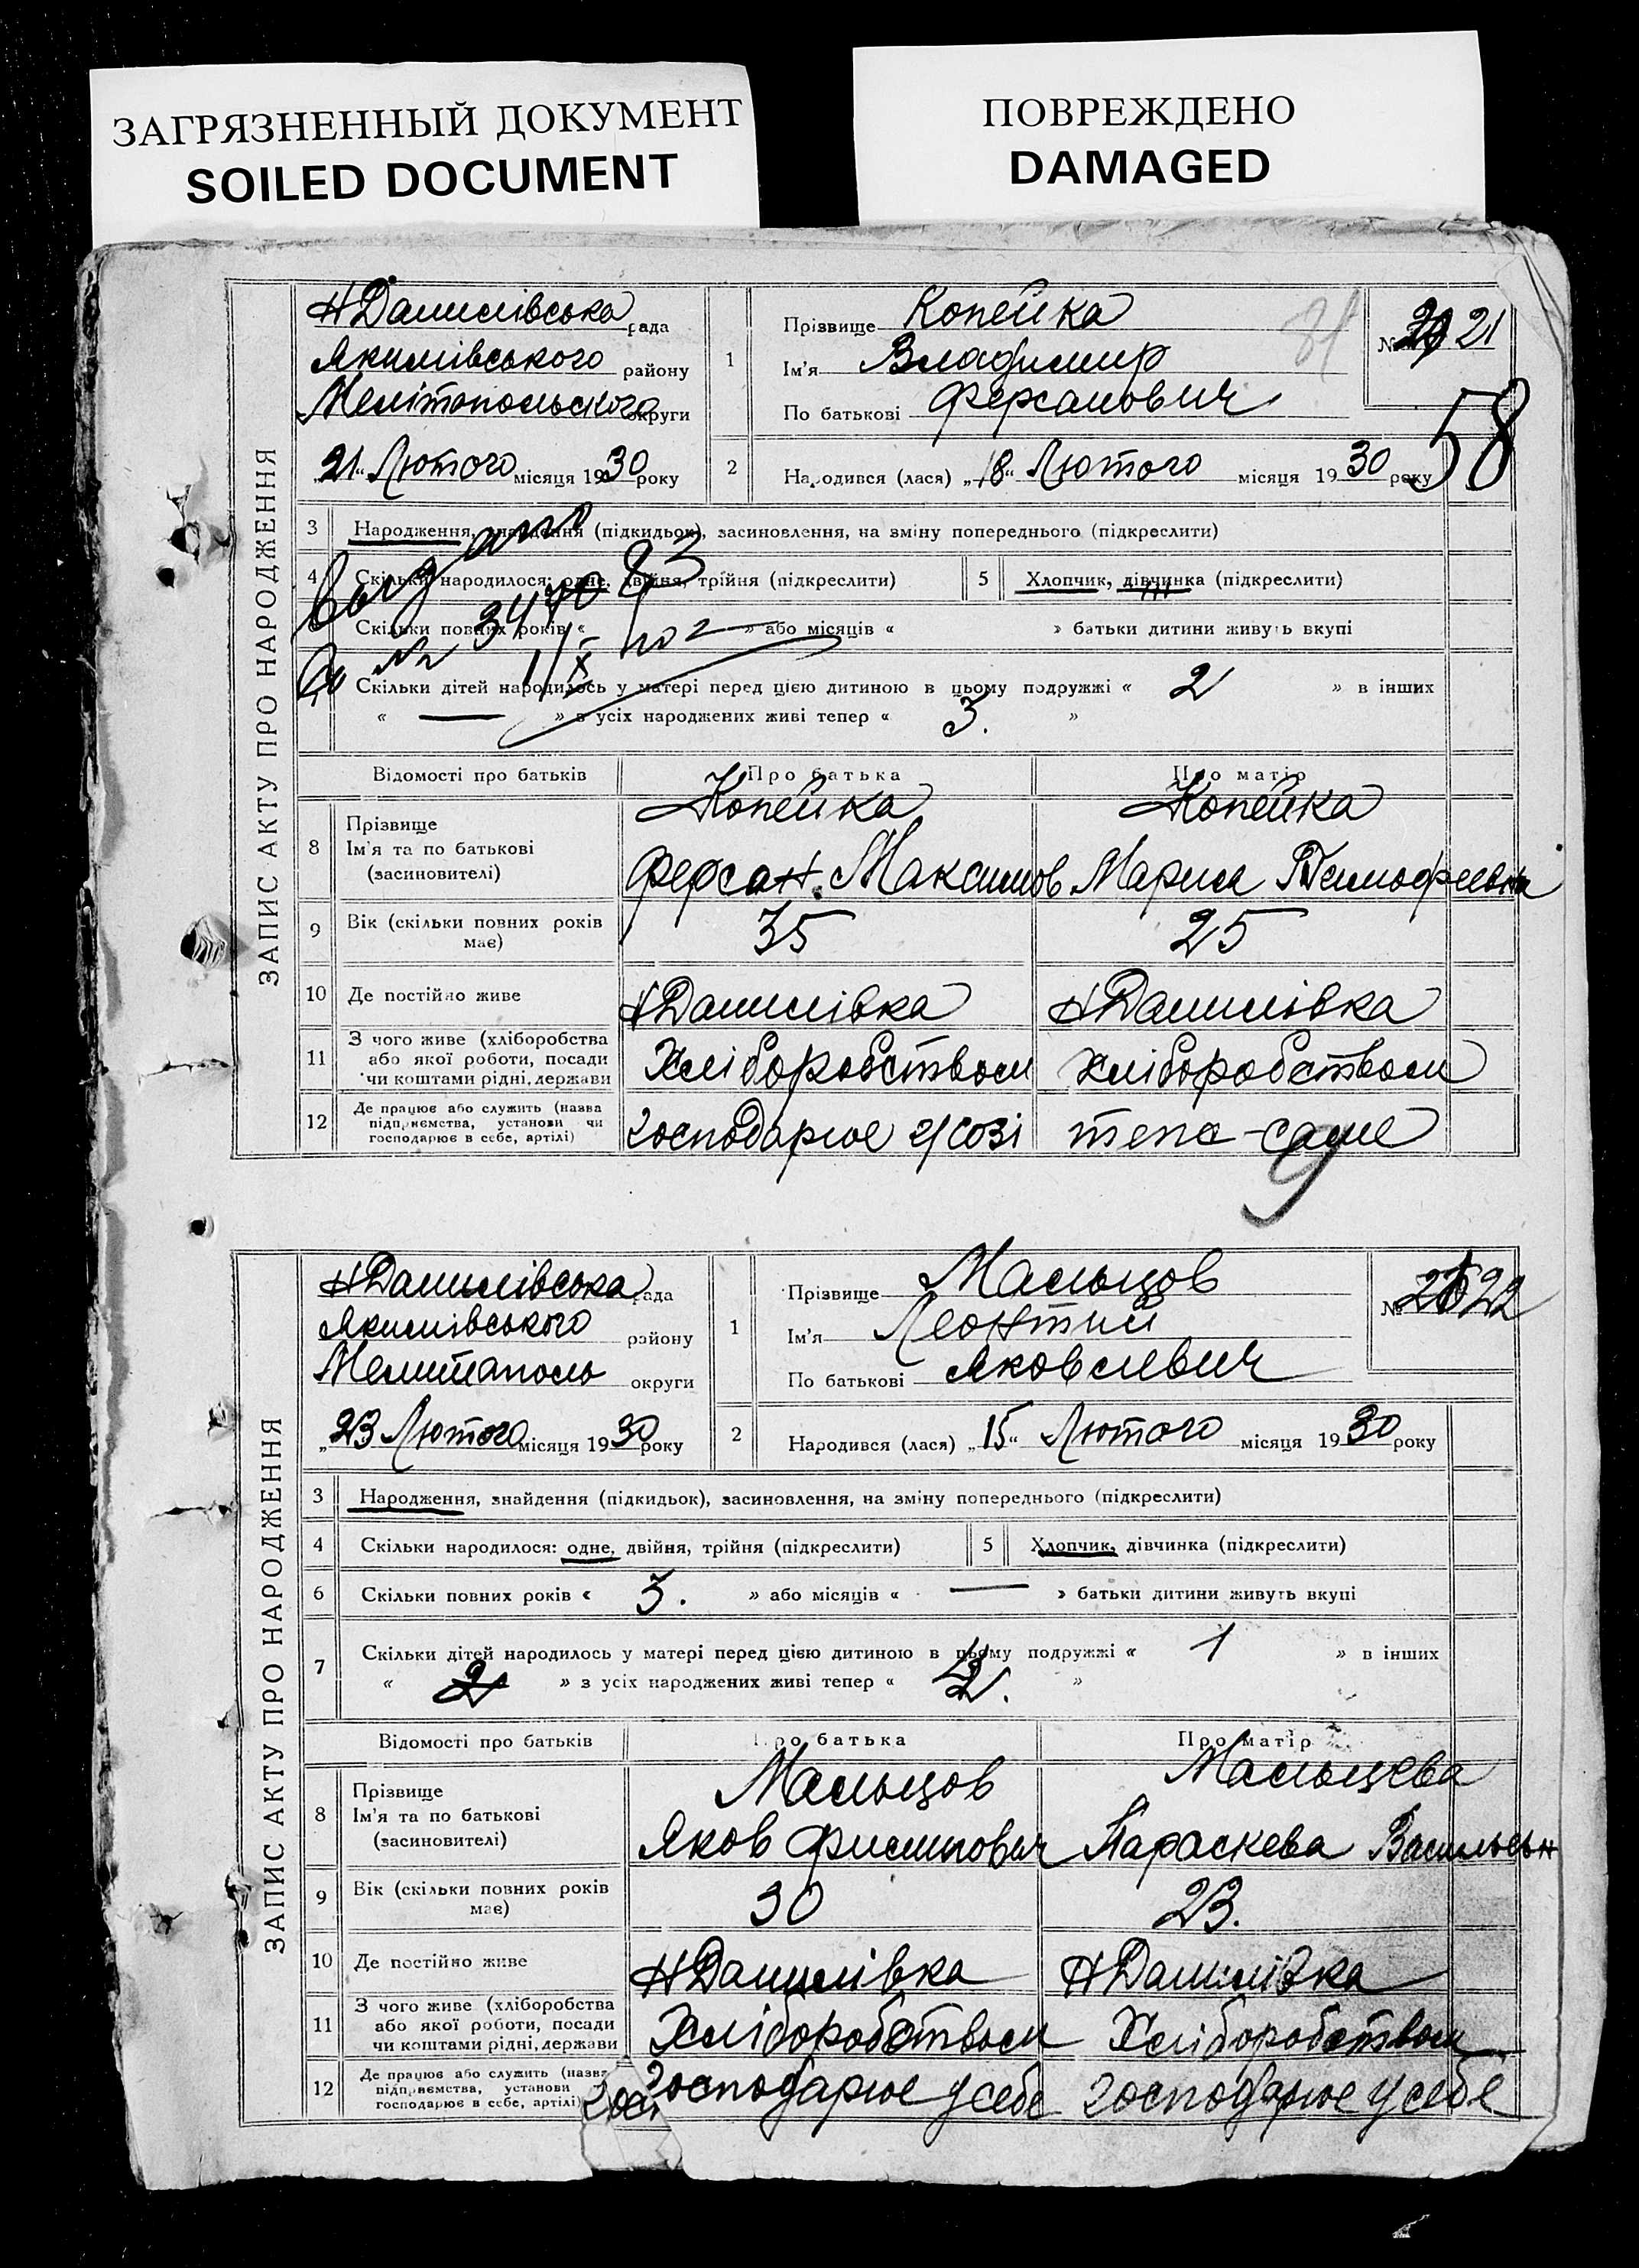 ЗАГРЯЗНЕННЫЙ ДОКУМЕНТ
SOILED DOCUMENT
ПОВРЕЖДЕНО
DAMAGED
ЗАПИС АКТУ ПРО НАРОДЖЕННЯ
Н Данилівська рада
Якимівського району
Мелітопольського округи
„21“ Лютого місяця 1930 року
1
Прізвище Копейка
Ім'я Владимир
По батькові Ферсанович
№ 21
58
2
Народився (лася) „18“ Лютого місяця 1930 року
3 Народження, знайдення (підкидьок), засиновлення, на зміну попереднього (підкреслити)
4 Скільки народилося: одне, двійня, трійня (підкреслити)
5 Хлопчик, дівчинка (підкреслити)
Скільки повних років « » або місяців « » батьки дитини живуть вкупі
Скільки дітей народилось у матері перед цією дитиною в цьому подружжі « 2 » в інших
« — » з усіх народжених живі тепер « 3. »
Відомості про батьків Про батька Про матір
8 Прізвище Ім'я та по батькові (засиновителі)
Копейка Копейка
Ферсан Максимов Мария Тимофеевна
9 Вік (скільки повних років має) 35 25
10 Де постійно живе Н Данилівка Н Данилівка
11 З чого живе (хліборобства або якої роботи, посади чи коштами рідні, держави Хліборобством Хліборобством
12 Де працює або служить (назва підприємства, установи чи господарює в себе, артілі) господарює у созі теж-саме
ЗАПИС АКТУ ПРО НАРОДЖЕННЯ
Н Данилівська рада
Якимівського району
Мелитополь округи
„23 Лютого місяця 1930 року
1
Прізвище Мальцов
Ім'я Леонтий
По батькові Яковлевич
№ 22
2
Народився (лася) „15“ Лютого місяця 1930 року
3 Народження, знайдення (підкидьок), засиновлення, на зміну попереднього (підкреслити)
4 Скільки народилося: одне, двійня, трійня (підкреслити)
5 Хлопчик, дівчинка (підкреслити)
6 Скільки повних років « 3. » або місяців « — » батьки дитини живуть вкупі
7 Скільки дітей народилось у матері перед цією дитиною в цьому подружжі « 1 » в інших
« » з усіх народжених живі тепер « 2. »
Відомості про батьків Про батька Про матір
8 Прізвище Ім'я та по батькові (засиновителі)
Мальцов Мальцева
Яков Филипович Параскева Васильевн
9 Вік (скільки повних років має) 30 23.
10 Де постійно живе Н Данилівка Н Данилівка
11 З чого живе (хліборобства або якої роботи, посади чи коштами рідні, держави Хліборобством Хліборобством
12 Де працює або служить (назва підприємства, установи господарює в себе, артілі) господарює у себе господарює у себе